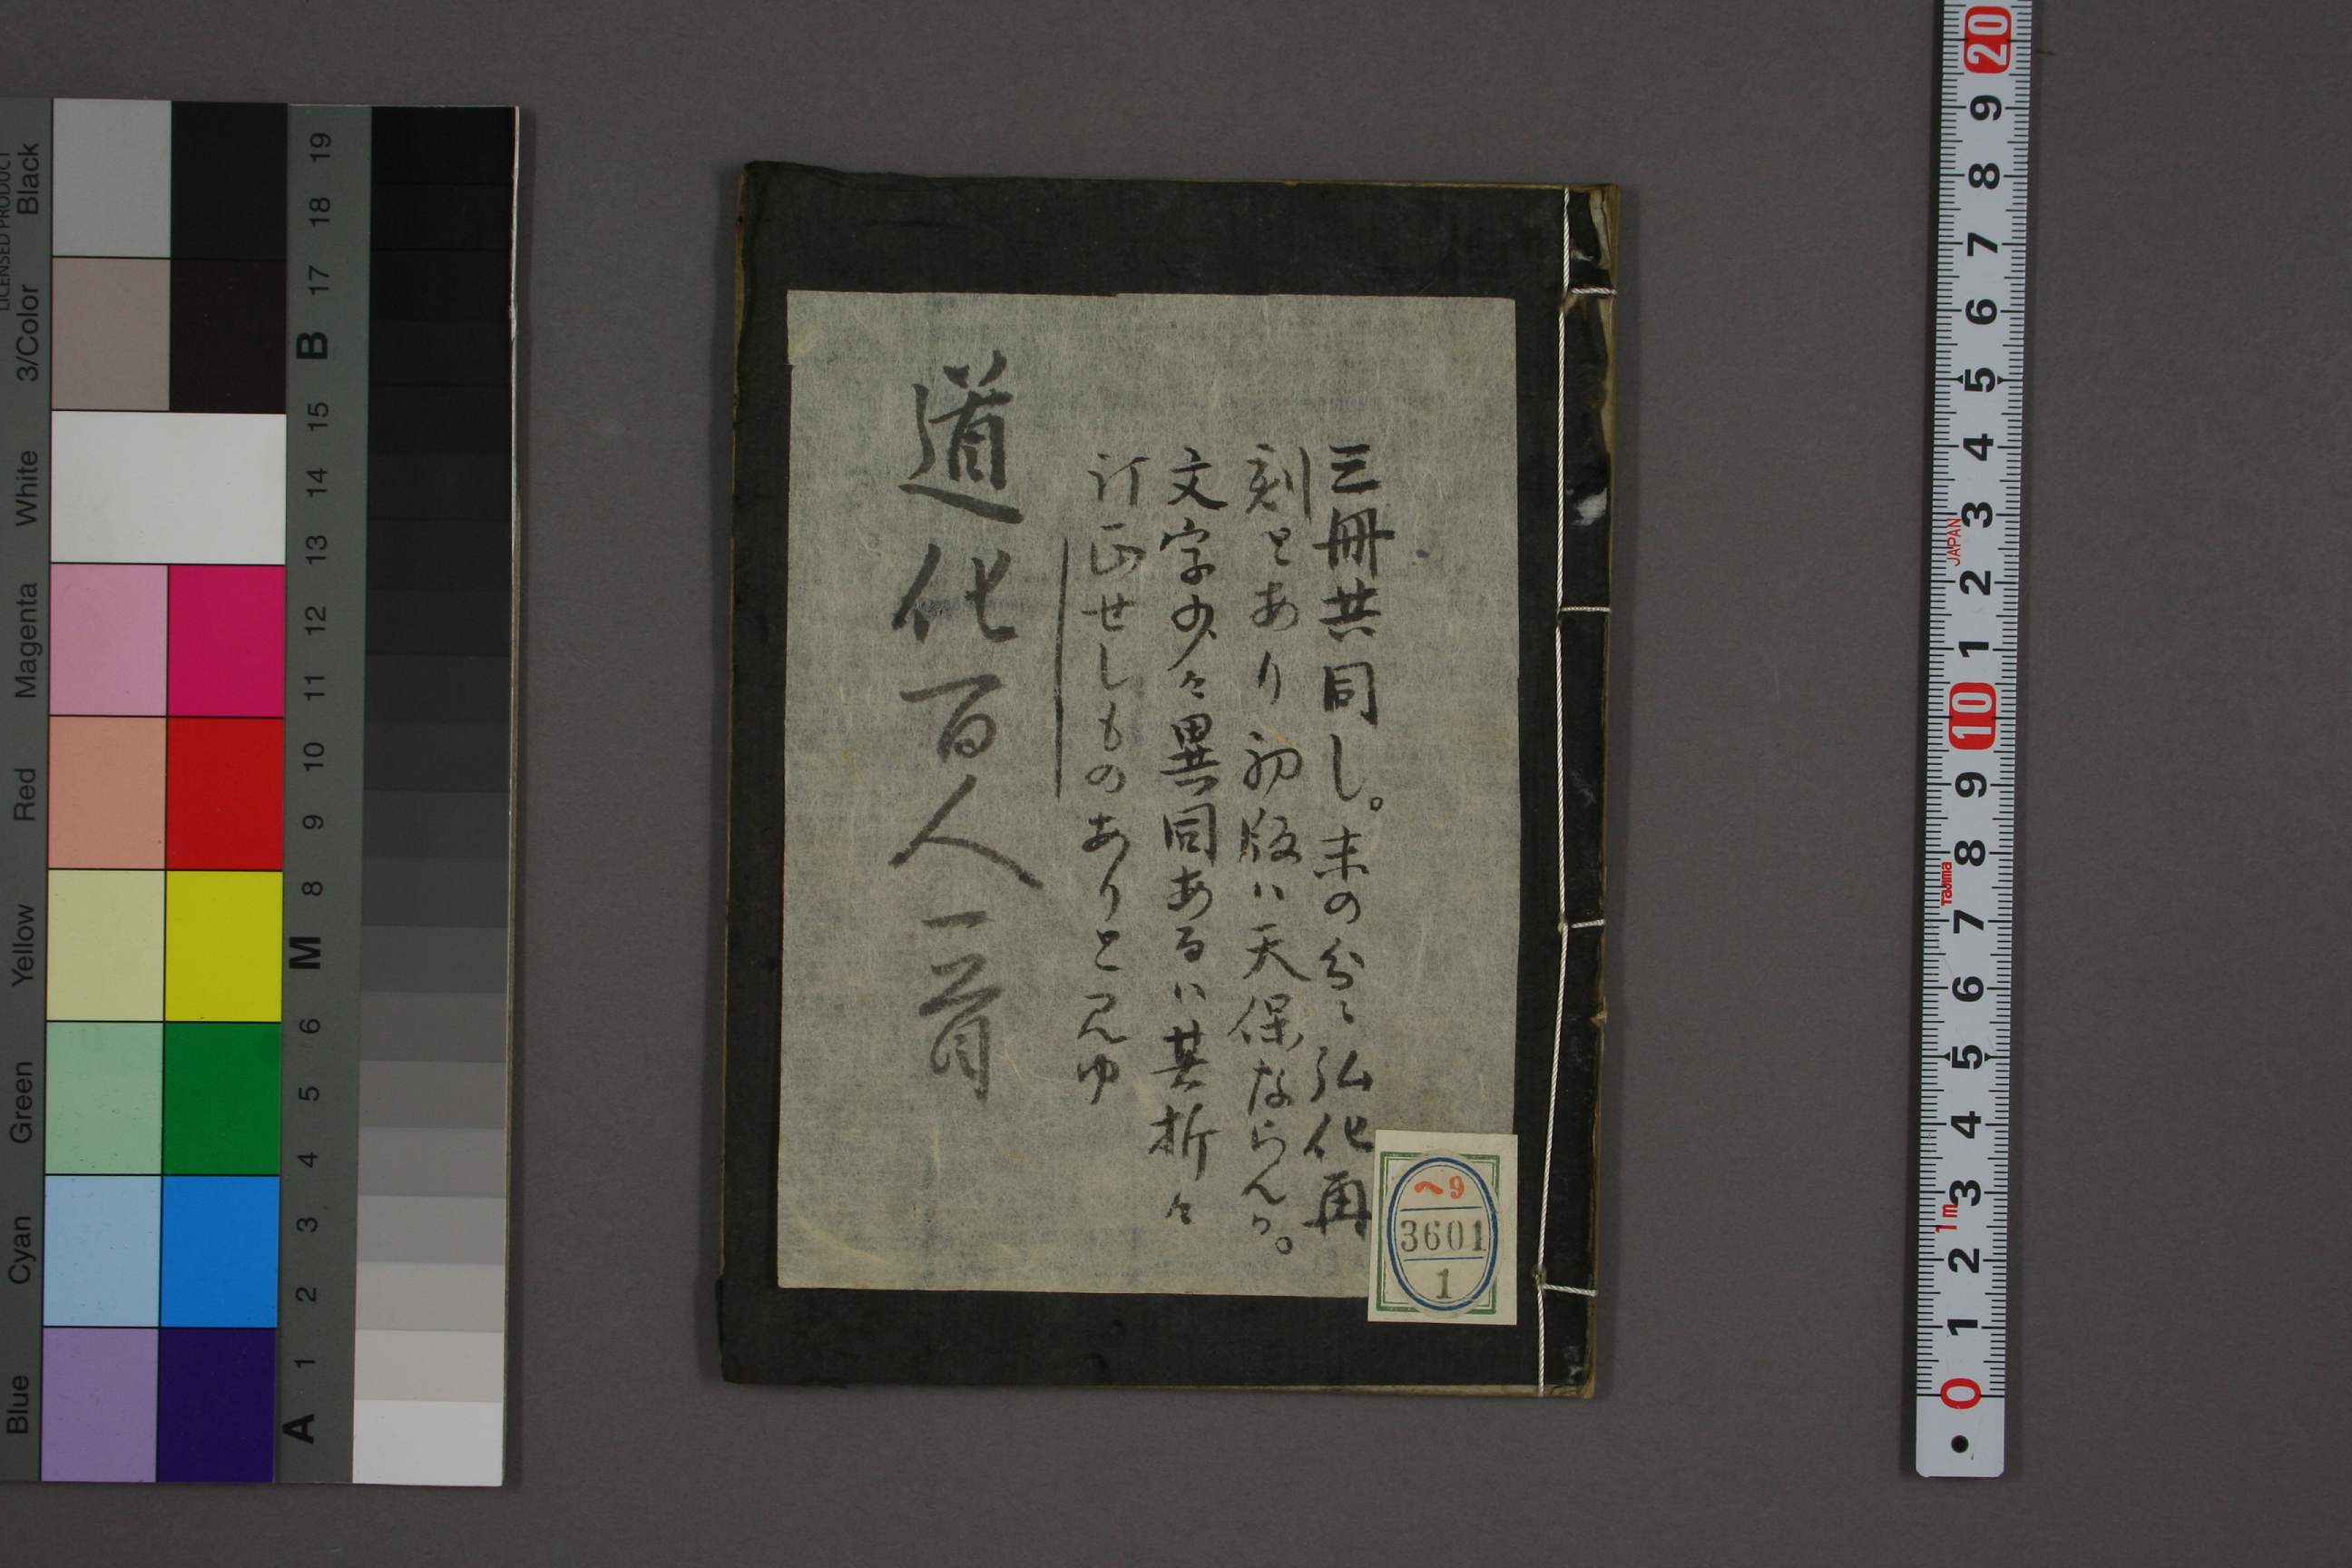 三冊共同し。末の分ニ弘化再
刻とあり初版ハ天保ならんか。
文字少々異同あるハ其折々
訂正せしものありと見ゆ
道化百人一首
ヘ9
3601
1
LICENSED PRODUCT
Black
3/Color
White
Magenta
Red
Yellow
Green
Cyan
Blue
19
18
17
B
15
14
13
12
11
10
9
8
M
6
5
4
3
2
1
A
20
9
8
7
6
5
4
3
JAPAN
2
1
10
9
8
Tajima
7
6
5
4
3
1m
2
1
0